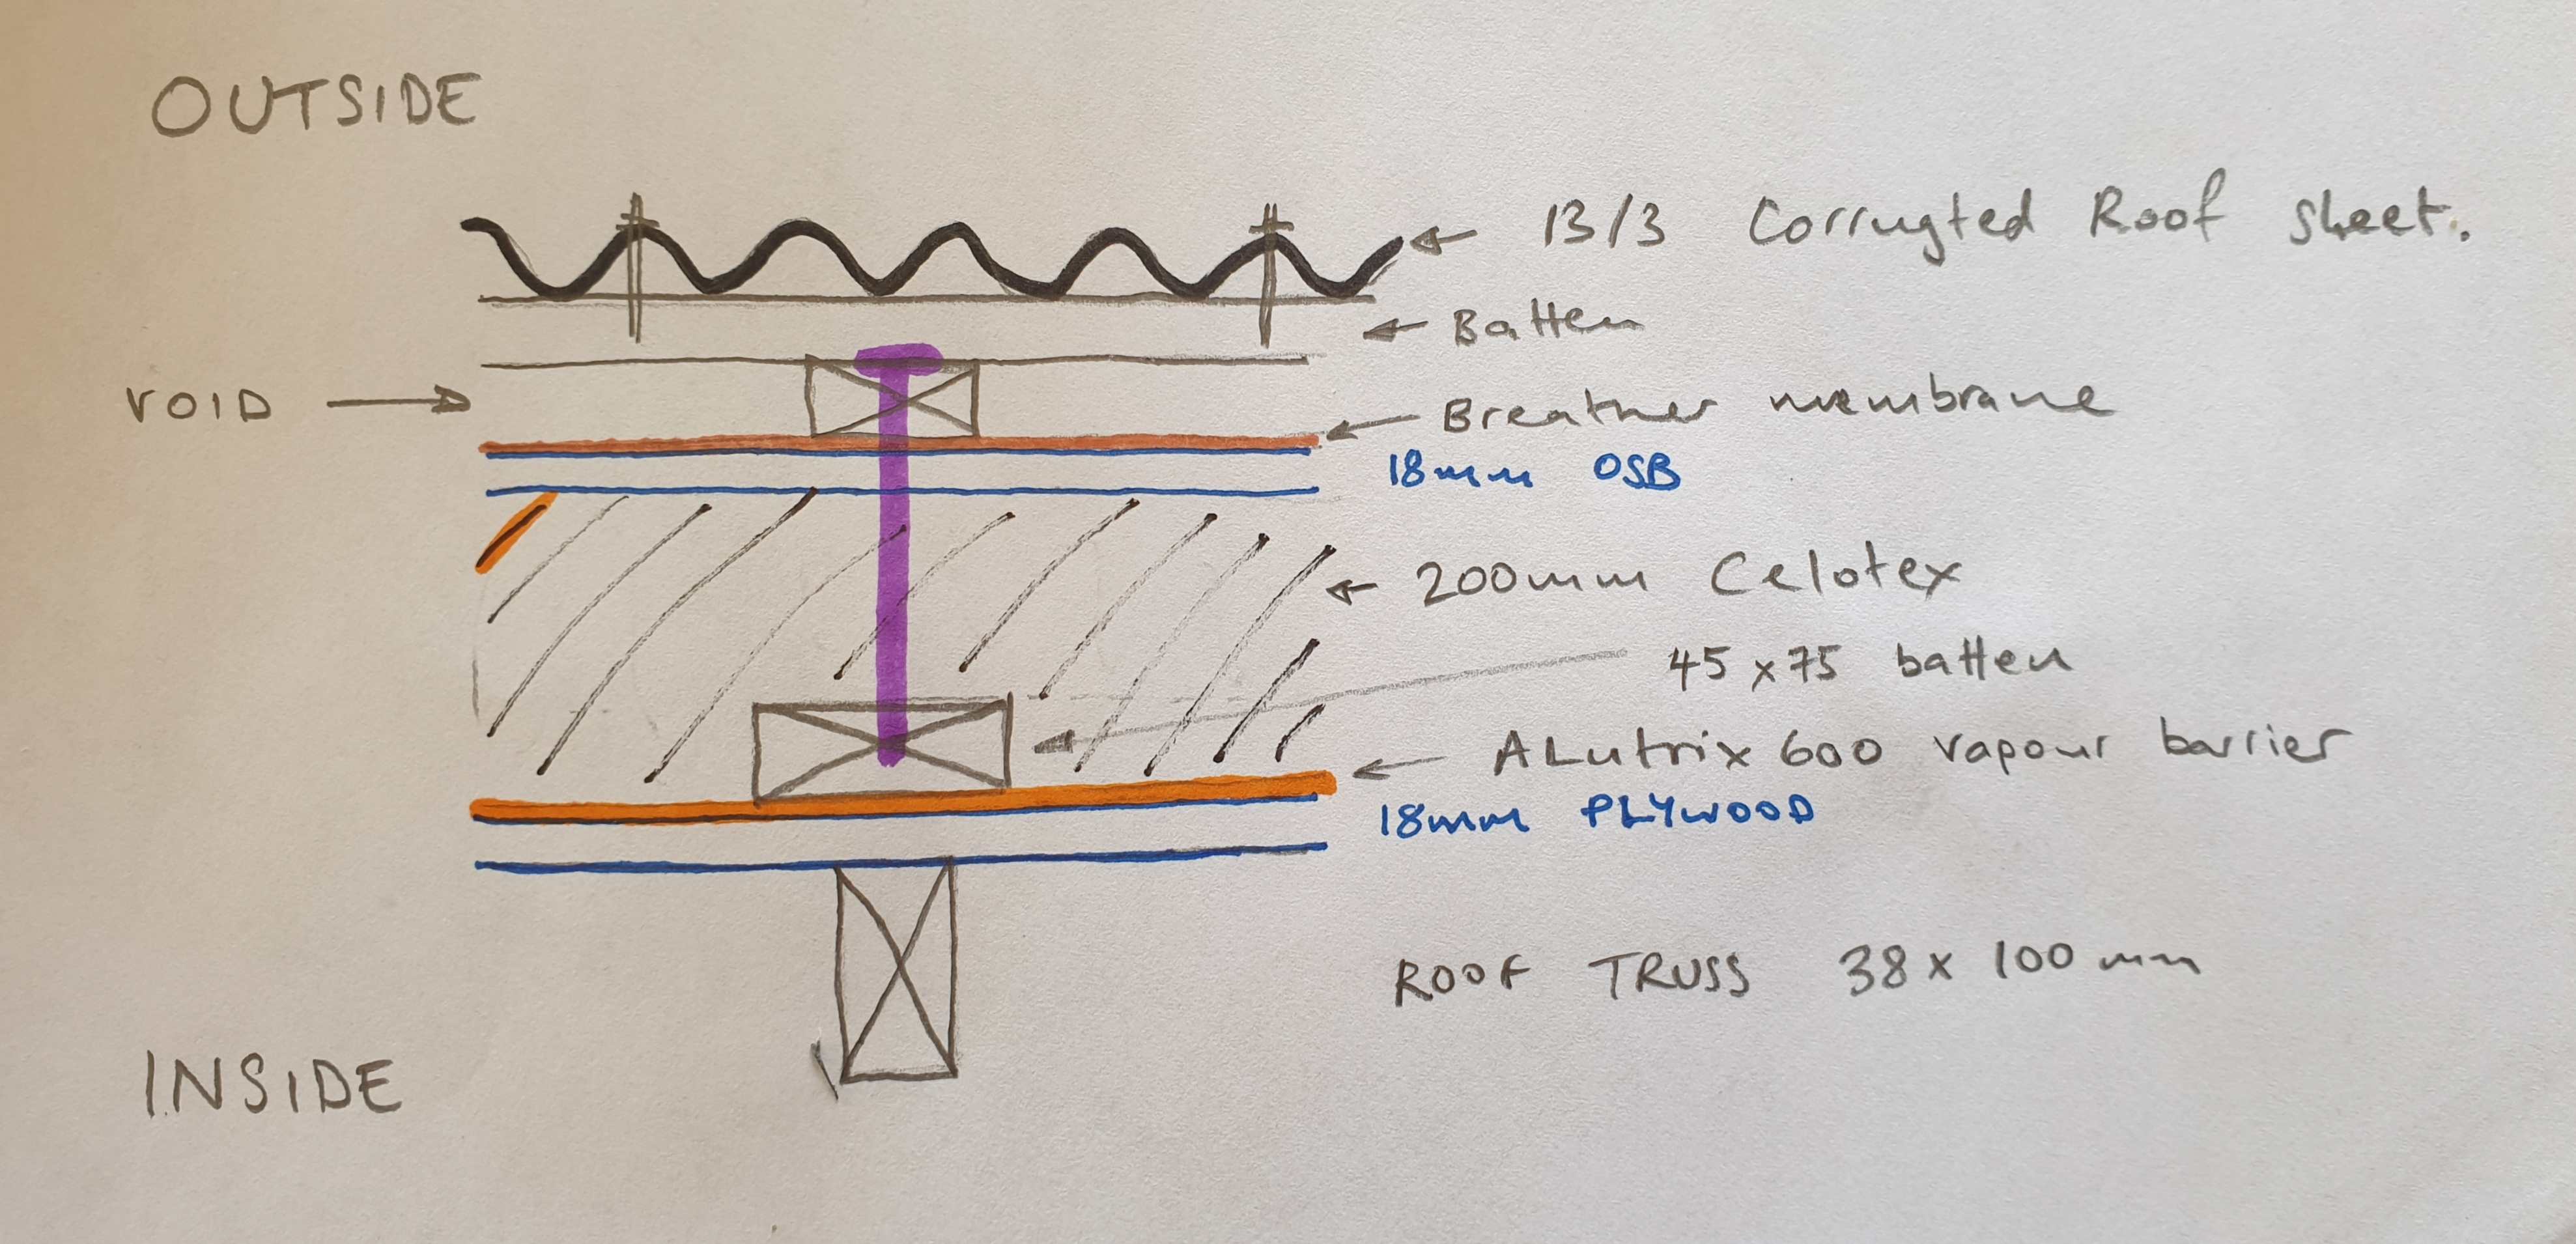 OUTSIDE
13/3 Corrugted Roof sheet.
Batten
VOID
Breather membrane
18mm OSB
200mm Celotex
45 x 75 batten
ALutrix 600 vapour barrier
18mm PLYWOOD
ROOF TRUSS 38 x 100mm
INSIDE